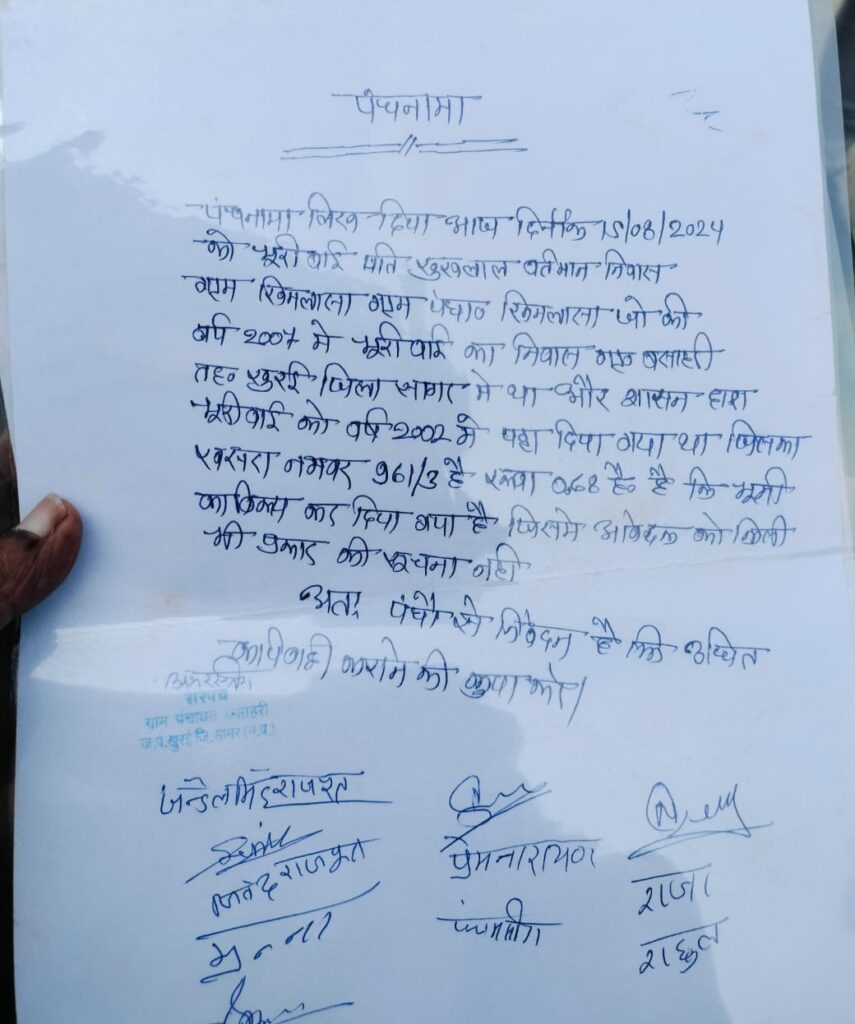 पंचनामा
पंचनामा लिख दिया आज दिनांक 15/08/2024
को भूरी बाई पति सुखलाल वर्तमान निवास
ग्राम खिमलासा ग्राम पंचा० खिमलासा जो की
वर्ष 2007 मे भूरी बाई का निवास ग्राम बसाहरी
तह० खुरई जिला सागर मे था और शासन द्वारा
भूरी बाई को वर्ष 2002 मे पट्टा दिया गया था जिसका
खसरा नम्बर 961/3 है रकवा 0.68 है० है कि भूमी
का विक्रय कर दिया गया है जिसमे आवेदक को किसी
भी प्रकार की सूचना नही
अतः पंचो से निवेदन है कि उचित
कार्यवाही कराने की कृपा करे।
सरपंच
ग्राम पंचायत बसाहरी
ज.प.खुरई जि.सागर (म.प्र.)
जन्डेलसिंह राजपूत
प्रेमनारायण
राजपूत
राजा
मुन्ना
राहुल